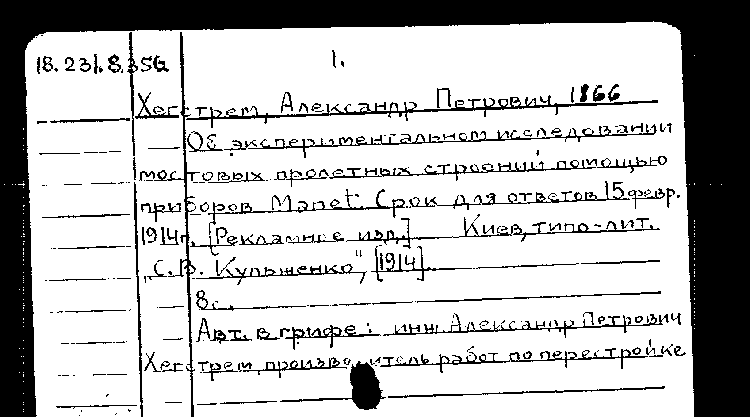 18. 231. 8. 356 1.
Хегстрем, Александр Петрович, 1866
Об экспериментальном исследовании
мостовых пролетных строений помощью
приборов Manet: Срок для ответов 15 февр.
1914г. [Рекламное изд.] Киев, типо-лит.
„С. В. Кульженко", [1914].
8с.
Авт. в грифе: инж. Александр Петрович
Хегстрем, производитель работ по перестройке